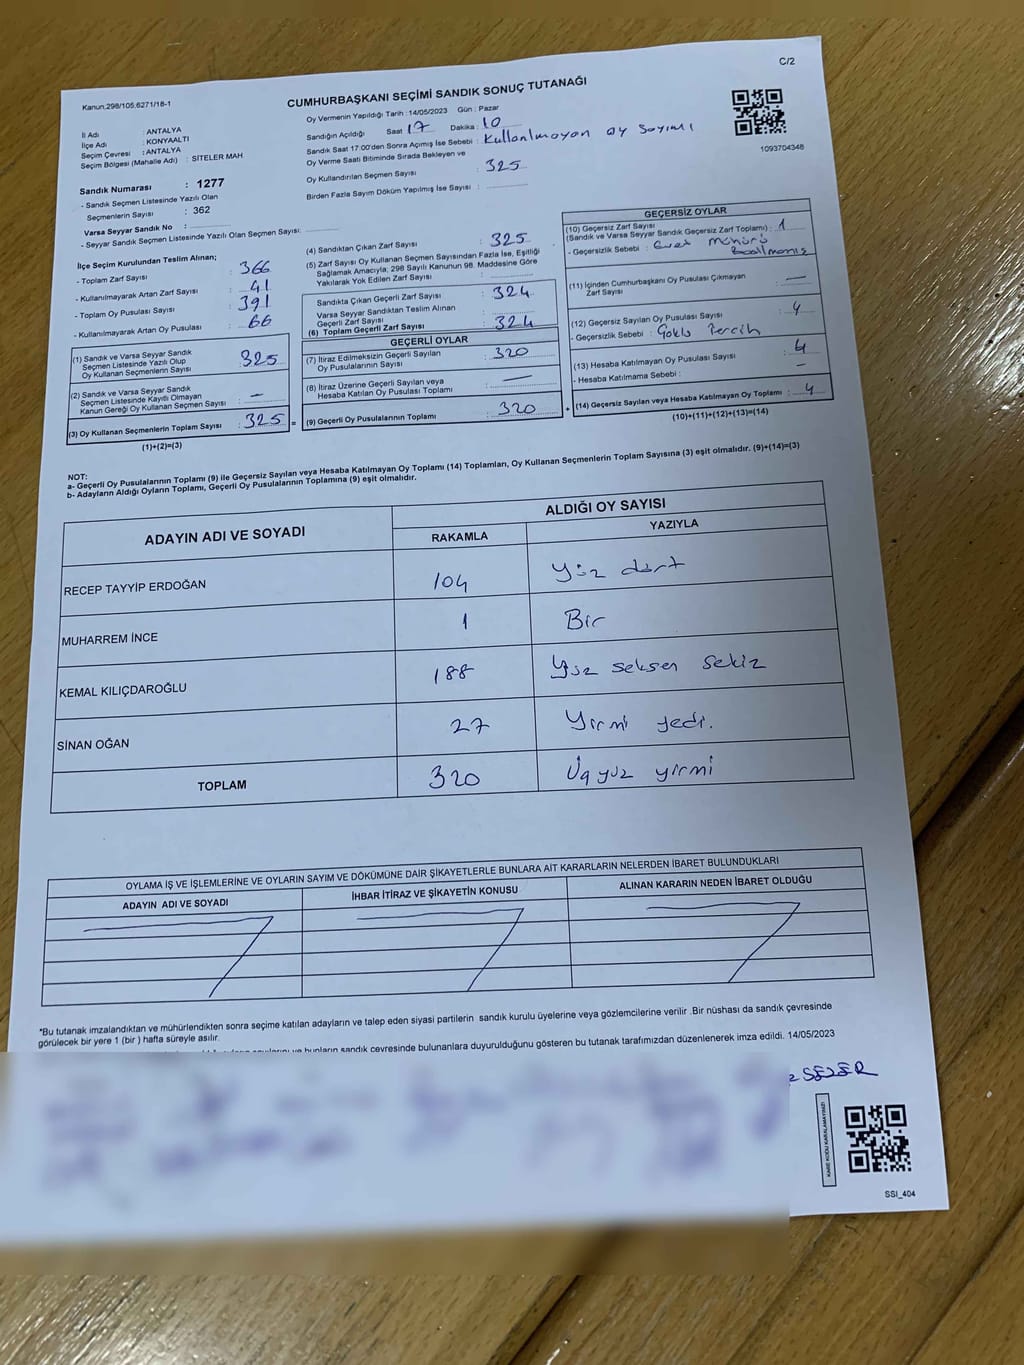 C/2
Kanun.298/105,6271/18-1
CUMHURBAŞKANI SEÇİMİ SANDIK SONUÇ TUTANAĞI
İl Adı : ANTALYA
İlçe Adı : KONYAALTI
Seçim Çevresi : ANTALYA
Seçim Bölgesi (Mahalle Adı) : SİTELER MAH
Oy Vermenin Yapıldığı Tarih : 14/05/2023 Gün : Pazar
Sandığın Açıldığı Saat 17 Dakika : 10
Sandık Saat 17:00'den Sonra Açmış İse Sebebi : Kullanılmayan oy sayımı
Oy Verme Saati Bitiminde Sırada Bekleyen ve
Oy Kullandırılan Seçmen Sayısı : 325
Birden Fazla Sayım Döküm Yapılmış İse Sayısı :
1093704348
Sandık Numarası : 1277
- Sandık Seçmen Listesinde Yazılı Olan
Seçmenlerin Sayısı : 362
Varsa Seyyar Sandık No :
- Seyyar Sandık Seçmen Listesinde Yazılı Olan Seçmen Sayısı:
İlçe Seçim Kurulundan Teslim Alınan;
- Toplam Zarf Sayısı : 366
- Kullanılmayarak Artan Zarf Sayısı : 41
- Toplam Oy Pusulası Sayısı : 391
- Kullanılmayarak Artan Oy Pusulası : 66
(1) Sandık ve Varsa Seyyar Sandık
Seçmen Listesinde Yazılı Olup
Oy Kullanan Seçmenlerin Sayısı : 325
(2) Sandık ve Varsa Seyyar Sandık
Seçmen Listesinde Kayıtlı Olmayan
Kanun Gereği Oy Kullanan Seçmen Sayısı : —
(3) Oy Kullanan Seçmenlerin Toplam Sayısı : 325
(1)+(2)=(3)
(4) Sandıktan Çıkan Zarf Sayısı : 325
(5) Zarf Sayısı Oy Kullanan Seçmen Sayısından Fazla İse, Eşitliği
Sağlamak Amacıyla, 298 Sayılı Kanunun 98. Maddesine Göre
Yakılarak Yok Edilen Zarf Sayısı :
Sandıkta Çıkan Geçerli Zarf Sayısı : 324
Varsa Seyyar Sandıktan Teslim Alınan
Geçerli Zarf Sayısı :
(6) Toplam Geçerli Zarf Sayısı : 324
GEÇERLİ OYLAR
(7) İtiraz Edilmeksizin Geçerli Sayılan
Oy Pusulalarının Sayısı : 320
(8) İtiraz Üzerine Geçerli Sayılan veya
Hesaba Katılan Oy Pusulası Toplamı : —
= (9) Geçerli Oy Pusulalarının Toplamı : 320
GEÇERSİZ OYLAR
(10) Geçersiz Zarf Sayısı
(Sandık ve Varsa Seyyar Sandık Geçersiz Zarf Toplamı) : 1
- Geçersizlik Sebebi : Evet mührü
Basılmamış
(11) İçinden Cumhurbaşkanı Oy Pusulası Çıkmayan
Zarf Sayısı : —
(12) Geçersiz Sayılan Oy Pusulası Sayısı : 4
- Geçersizlik Sebebi : Çoklu Tercih
(13) Hesaba Katılmayan Oy Pusulası Sayısı : 4
- Hesaba Katılmama Sebebi : —
+ (14) Geçersiz Sayılan veya Hesaba Katılmayan Oy Toplamı : 4
(10)+(11)+(12)+(13)=(14)
NOT:
a- Geçerli Oy Pusulalarının Toplamı (9) ile Geçersiz Sayılan veya Hesaba Katılmayan Oy Toplamı (14) Toplamları, Oy Kullanan Seçmenlerin Toplam Sayısına (3) eşit olmalıdır. (9)+(14)=(3)
b- Adayların Aldığı Oyların Toplamı, Geçerli Oy Pusulalarının Toplamına (9) eşit olmalıdır.
ADAYIN ADI VE SOYADI
ALDIĞI OY SAYISI
RAKAMLA YAZIYLA
RECEP TAYYİP ERDOĞAN 104 Yüz dört
MUHARREM İNCE 1 Bir
KEMAL KILIÇDAROĞLU 188 Yüz seksen sekiz
SİNAN OĞAN 27 Yirmi yedi.
TOPLAM 320 Üçyüz yirmi
OYLAMA İŞ VE İŞLEMLERİNE VE OYLARIN SAYIM VE DÖKÜMÜNE DAİR ŞİKAYETLERLE BUNLARA AİT KARARLARIN NELERDEN İBARET BULUNDUKLARI
ADAYIN ADI VE SOYADI İHBAR İTİRAZ VE ŞİKAYETİN KONUSU ALINAN KARARIN NEDEN İBARET OLDUĞU
*Bu tutanak imzalandıktan ve mühürlendikten sonra seçime katılan adayların ve talep eden siyasi partilerin sandık kurulu üyelerine veya gözlemcilerine verilir .Bir nüshası da sandık çevresinde
görülecek bir yere 1 (bir ) hafta süreyle asılır.
bunların sandık çevresinde bulunanlara duyurulduğunu gösteren bu tutanak tarafımızdan düzenlenerek imza edildi. 14/05/2023
SEZER
KARE KODU KARALAMAYINIZ!
SSI_404